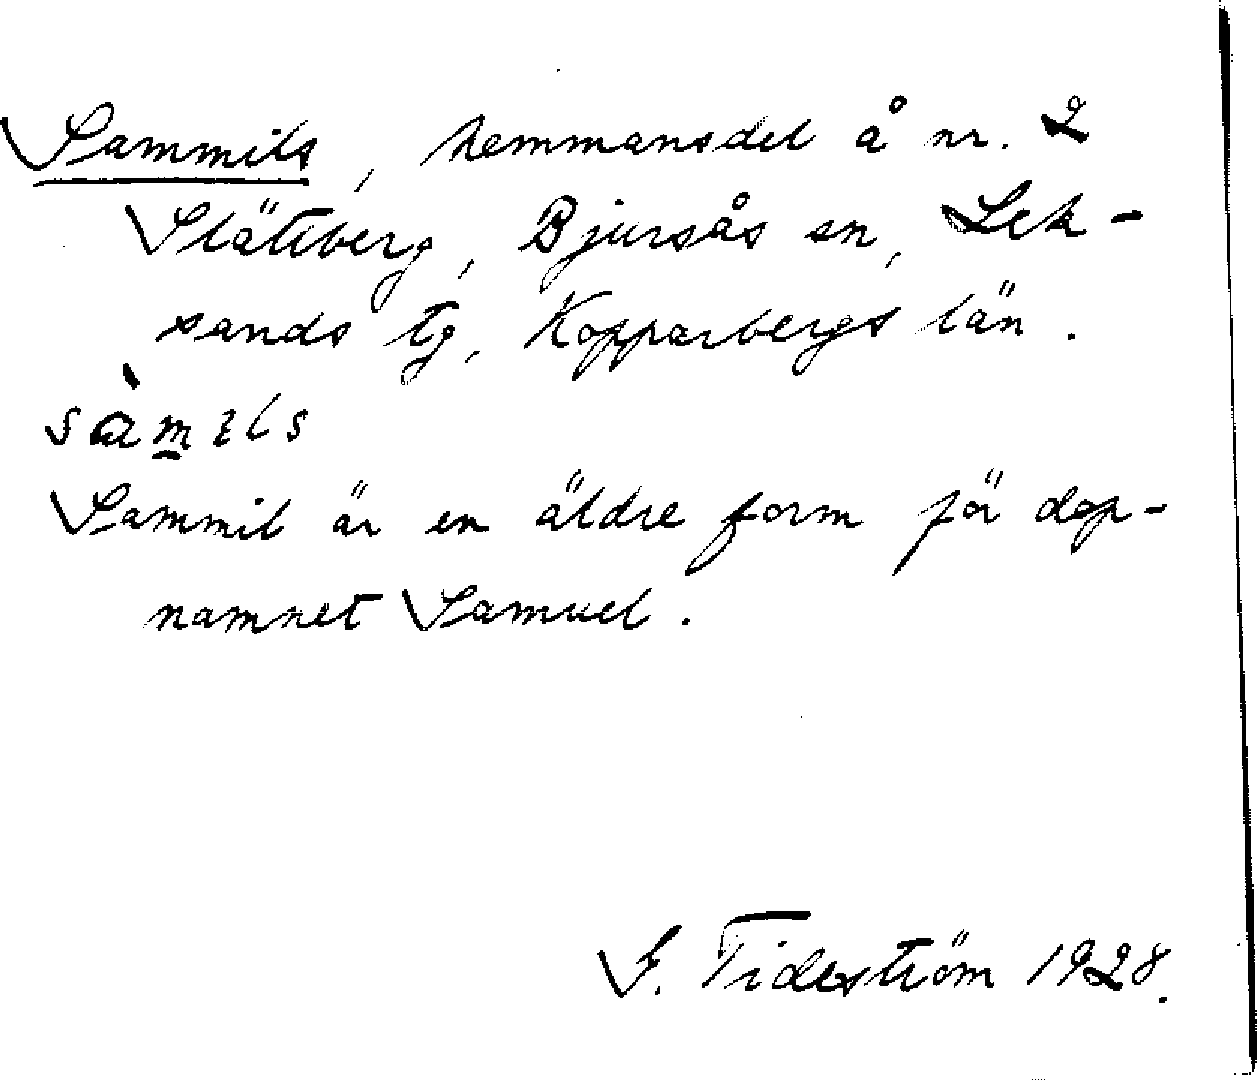 Sammils, hemmansdel å nr. 2
Slättberg, Bjursås sn, Lek-
sands tg, Kopparbergs län.
sàm̲ɩls
Sammil är en äldre form för dop-
namnet Samuel.
G. Tideström 1928.